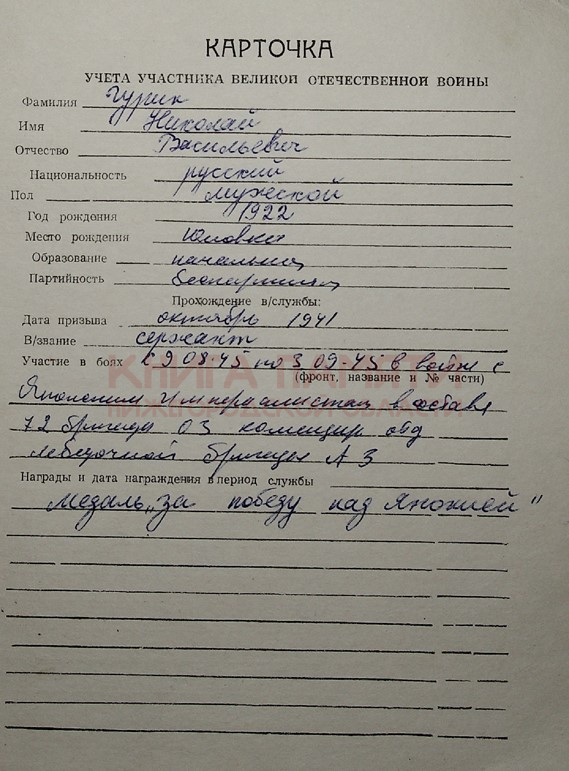 КАРТОЧКА
УЧЕТА УЧАСТНИКА ВЕЛИКОЙ ОТЕЧЕСТВЕННОЙ ВОЙНЫ
Фамилия Гурик
Имя Николай
Отчество Васильевич
Национальность русский
Пол мужской
Год рождения 1922
Место рождения Юловка
Образование начальн
Партийность беспартийн
Прохождение в/службы:
Дата призыва октябрь 1941
В/звание сержант
Участие в боях с 9 08 45 по 3 09-45 в войне с
(фронт, название и № части)
КНИГА ПАМЯТИ
Японским империалистам в составе
НИЖЕГОРОДСКОЙ ОБЛАСТИ
72 бригады ОЗ командир отд
лебедочной бригады АЗ
Награды и дата награждения в период службы
Медаль „За победу над Японией"